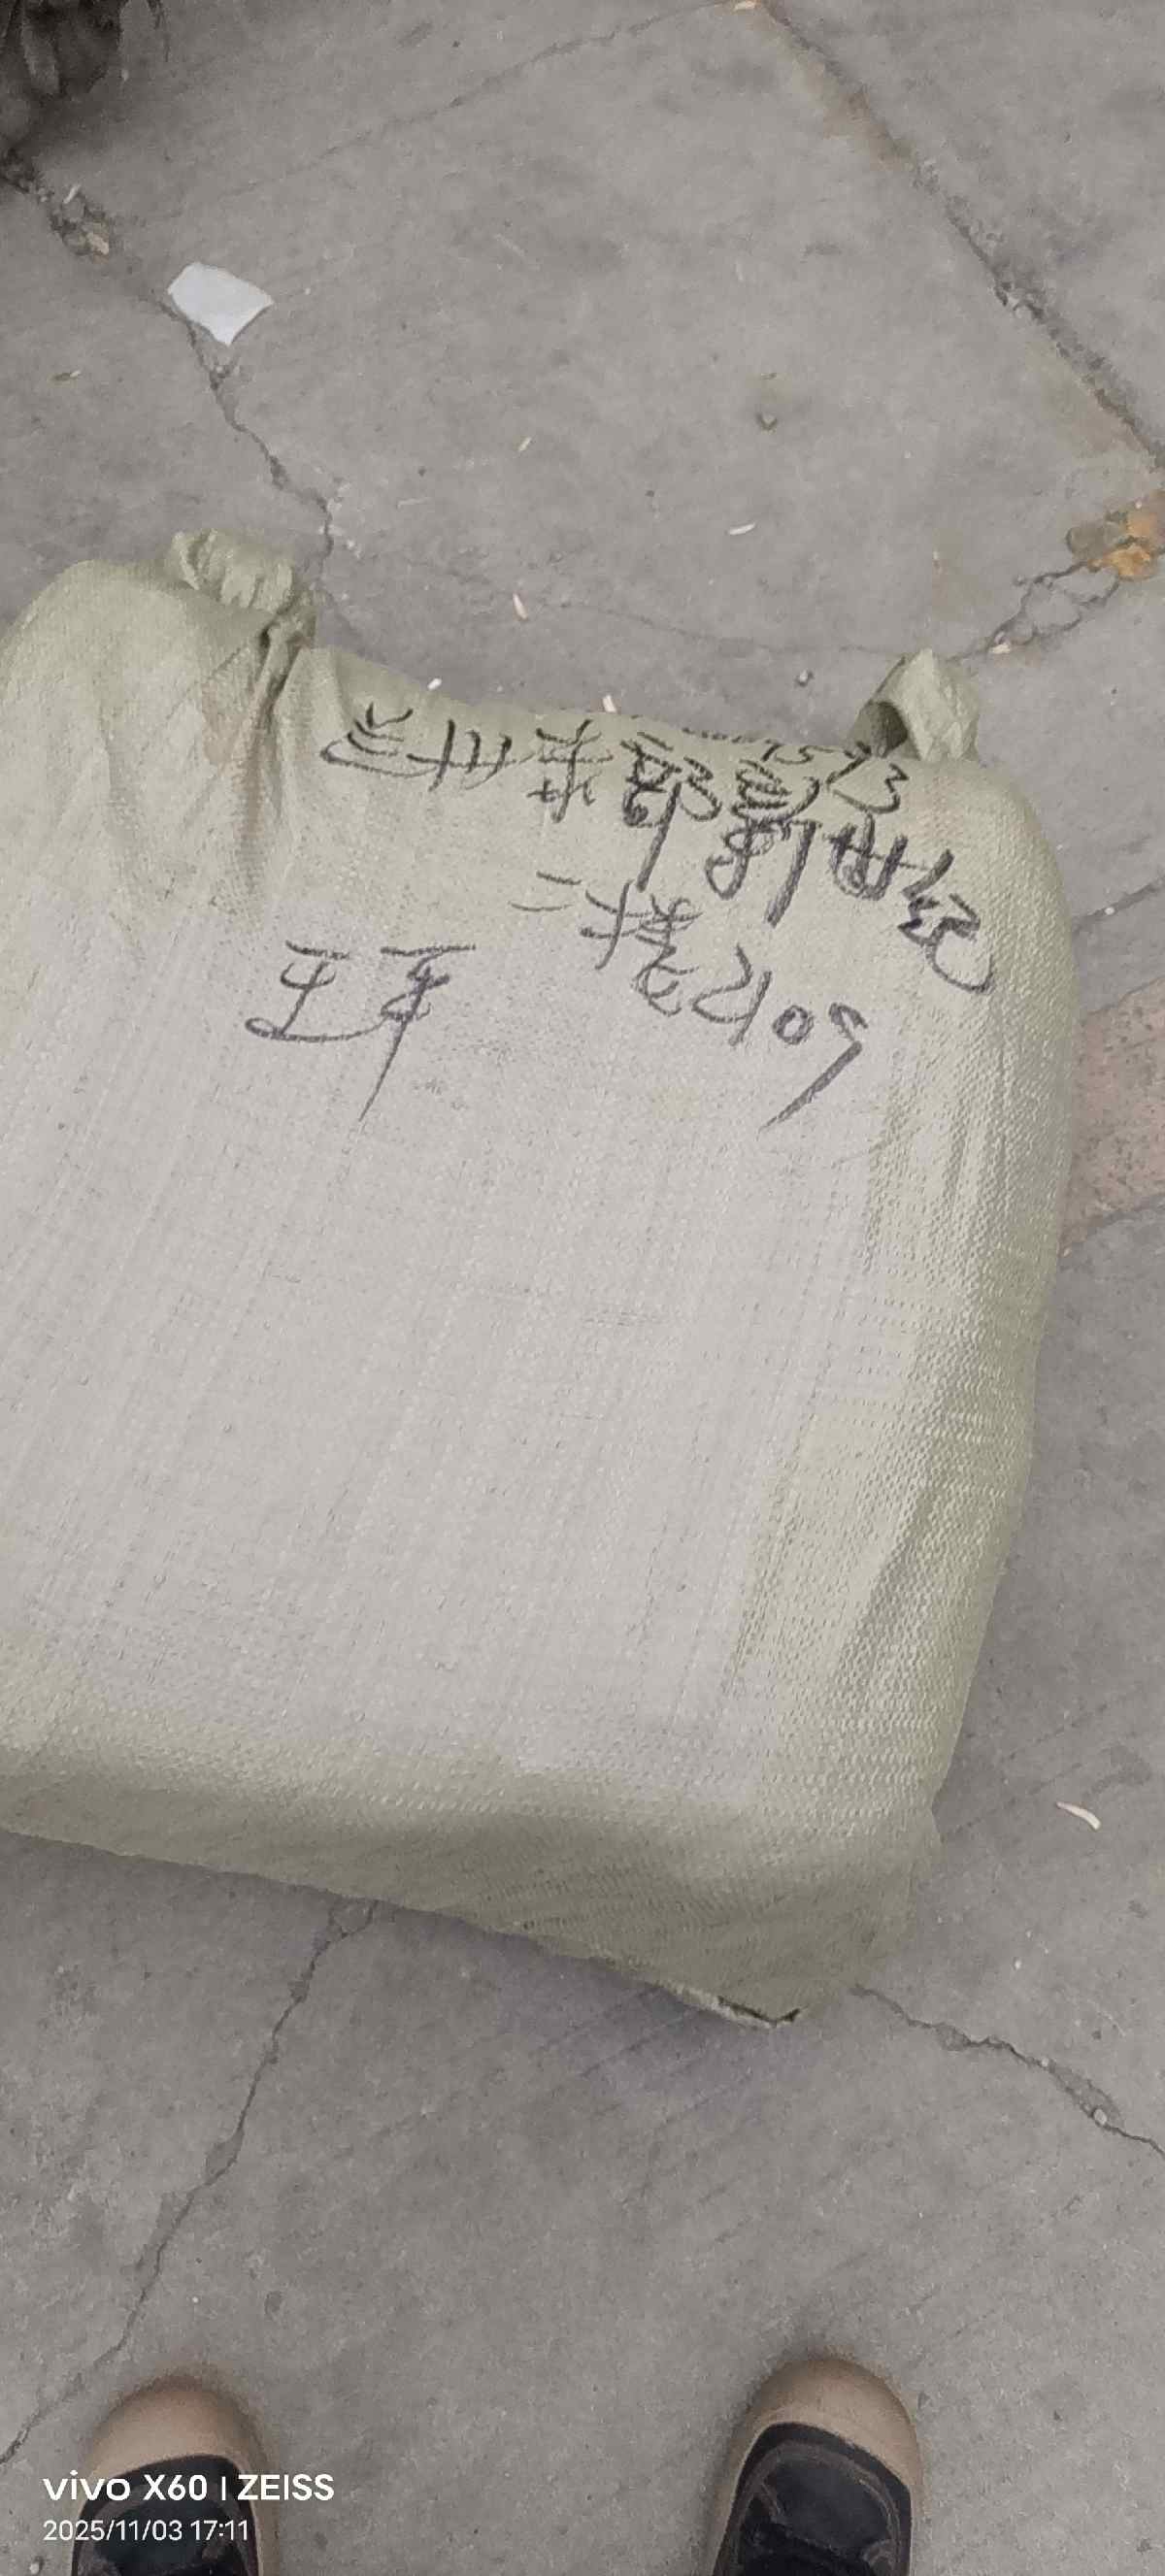 兰州东部新世纪
二楼2109
王军
vivo X60 | ZEISS
2025/11/03 17:11